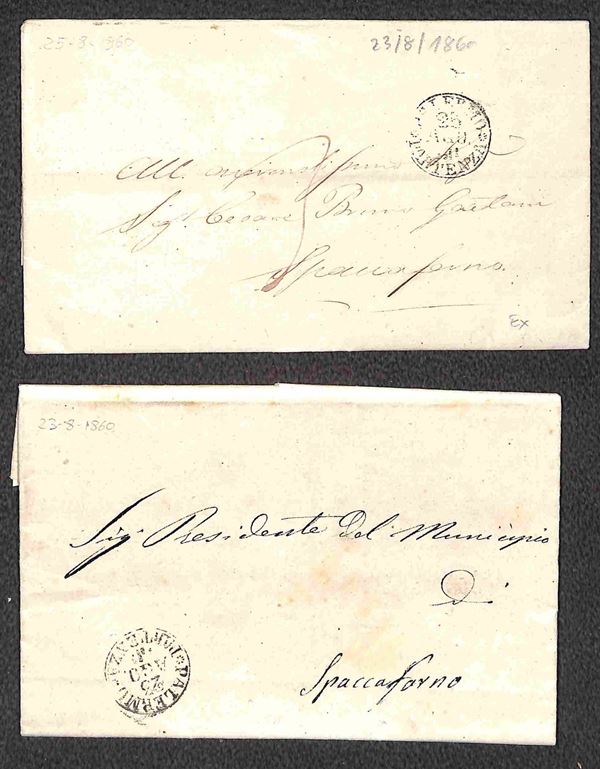 25-8-860
23/8/1860
PALERMO PARTENZA
25
AGO.
All
Sig.r Cesare Bruno Gaetani
Spaccaforno
Ex
23-8-1860
Sig.r Presidente del Municipio
di
Spaccaforno
PALERMO PARTENZA
AGO